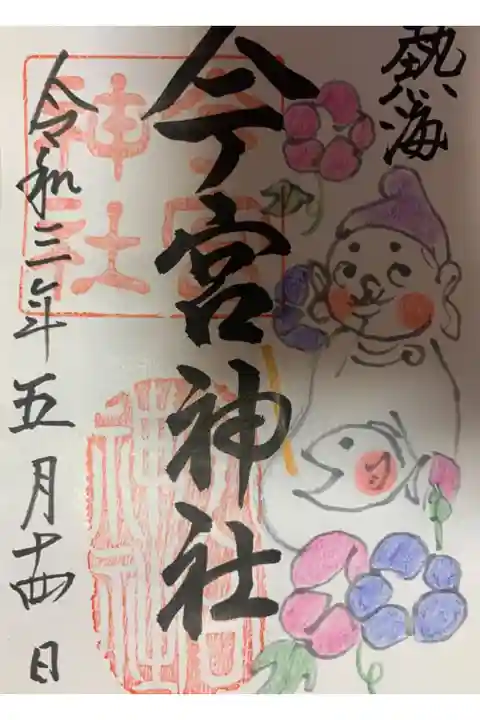 熱海
今宮神社
今宮神社
令和三年五月十四日